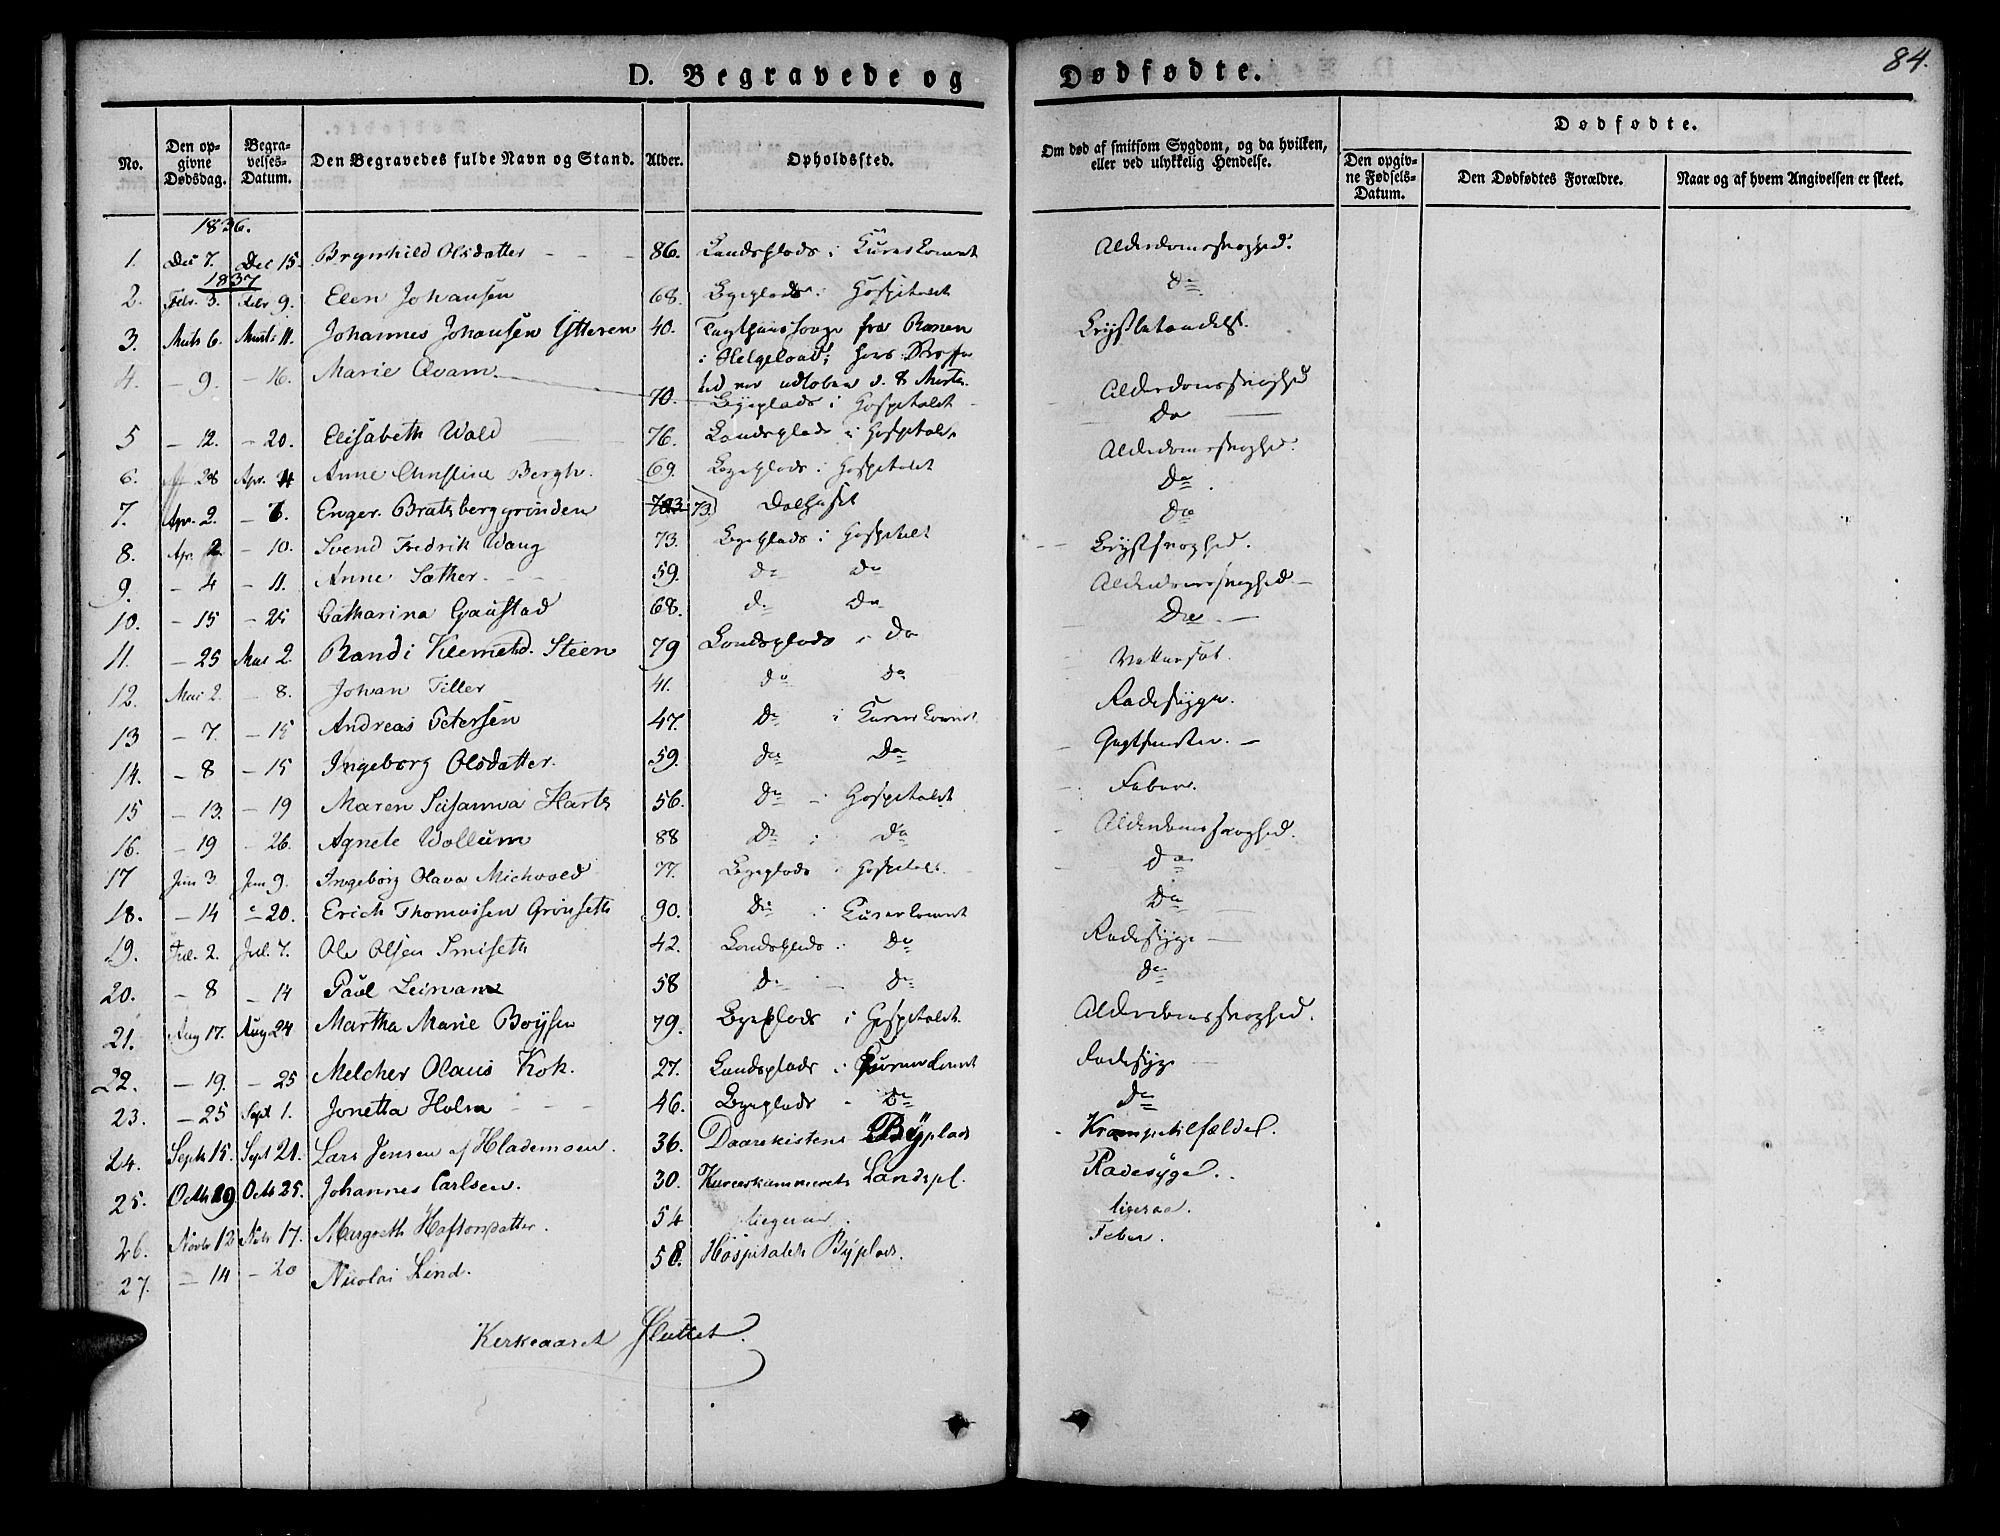 84.
D. Begravede og Dødfødte.
No. Den opgivne Dødsdag. Begravelses-Datum. Den Begravedes fulde Navn og Stand. Alder. Opholdssted. Om død af smitsom Sygdom, og da hvilken, eller ved ulykkelig Hendelse. Dødfødte. Den opgivne Fødsels-Datum. Den Dødfødtes Forældre. Naar og af hvem Angivelsen er skeet.
1836.
1. Dec 7. Dec 15. Brynhild Olsdatter 86. Landsplads i Alderdomssvaghed.
1837
2. Febr. 3. Febr 9. Elen Johansen 68. Byeplads i Hospitalet Do
3. Marts 6. Marts 11. Johannes Johansen Ytteren 40. Tugthuusfange fra Ranen
i Helgeland; hans
Tid var udløben d. 8 Marts.
4. – 9. – 16. Marie Qvam. 70. Byeplads i Hospitalet Alderdomssvaghed
5 – 12. – 20. Elisabeth Wold 76. Landsplads i Hospitalet Do
6. 28 Apr. Anne Christine Bergh. 69. Byeplads i Hospitalet Alderdomssvaghed.
7. Apr. 2. – 6. Enger. Bratsberggrinden 73. Dolhuset Do
8. Apr. 2. – 10. Svend Fredrik Wang 73. Byeplads i Hospitalet Do
9. – 4 – 11. Anne Sæther. 59. Do Do Brystsvaghed.
10. – 15 – 25 Catharina Gaustad 68. Do Do Alderdomssvaghed
11. – 25 Mai 2. Randi Klemetsd. Steen 79 Landsplads i Do Do
12. Mai 2. – 8. Johan Tiller 41. Do Do Vattersot.
13 – 7. – 15 Andreas Petersen 47. Do i Radesyge.
14. – 8 – 15 Ingeborg Olsdatter. 59. Do Do
15 – 13. – 19 Maren Susanna Harts 56. Do i Hospitalet Feber.
16. – 19 – 26. Agnete Wollum 88 Do i Do Alderdomssvaghed.
17 Jun 3. Jun 9. Ingeborg Olava 77. Byeplads i Hospitalet Do
18. – 14 – 20. Erich Thomassen Grönseth 90. Do i Do
19. Jul. 2. Jul. 7. Ole Olsen 42. Landsplads i Do Radesyge
20. – 8 – 14 Paul 58 Do Do Do
21. Aug 17. Aug 24 Martha Marie Boysen 79. Byeplads i Hospitalet Alderdomssvaghed.
22. – 19. – 25 Melcher Olaus Kok. 27. Landsplads i Radesyge
23. – 25 Sept 1. Jonetta Holm 46. Byeplads Do Do
24. Septb 15. Sept 21. Lars Jensen af Hlademoen. 36. Daarekistens Byplads Krampetilfælde.
25. Octb 19 Octb 25. Johannes Carlsen. 30. Kurerkammerets Landspl. Radesyge.
26. Novbr 12 Nobr 17. Margreth Haftorsdatter. 54 ligesaa. ligesaa.
27. – 14 – 20 Nicolai Lind. 58. Hospitalets Byplads. Feber.
Kirkeaaret Sluttet.